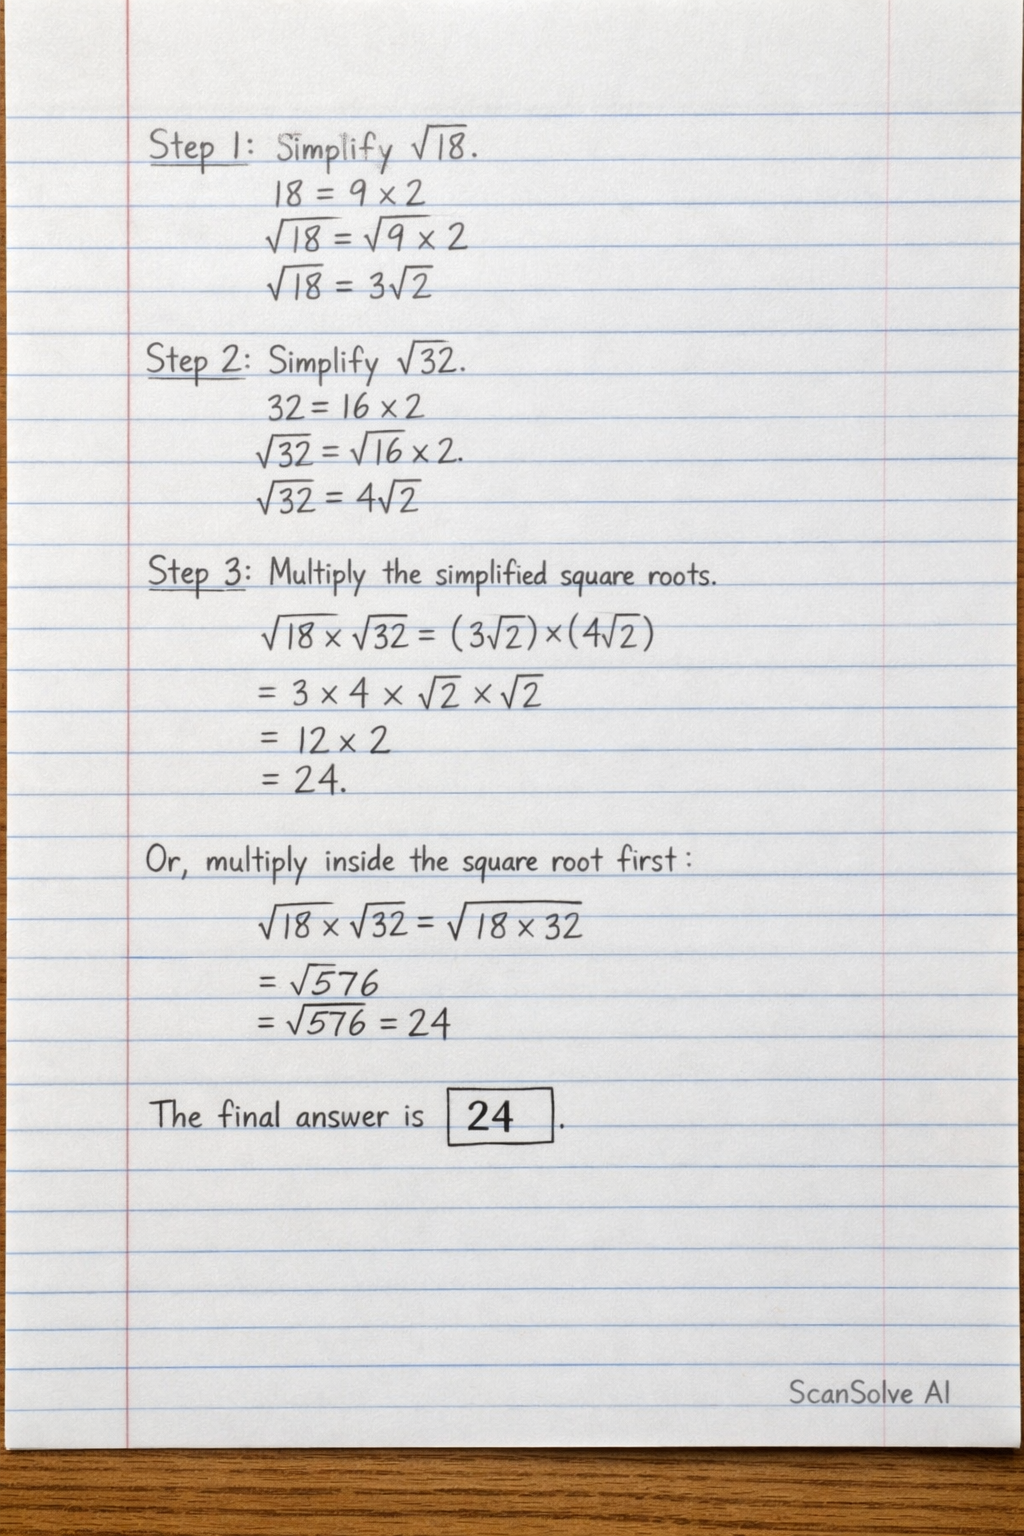 Step 1: Simplify √18.
18 = 9 × 2
√18 = √9 × 2
√18 = 3√2
Step 2: Simplify √32.
32 = 16 × 2
√32 = √16 × 2.
√32 = 4√2
Step 3: Multiply the simplified square roots.
√18 × √32 = (3√2) × (4√2)
= 3 × 4 × √2 × √2
= 12 × 2
= 24.
Or, multiply inside the square root first:
√18 × √32 = √18 × 32
= √576
= √576 = 24
The final answer is 24.
ScanSolve AI